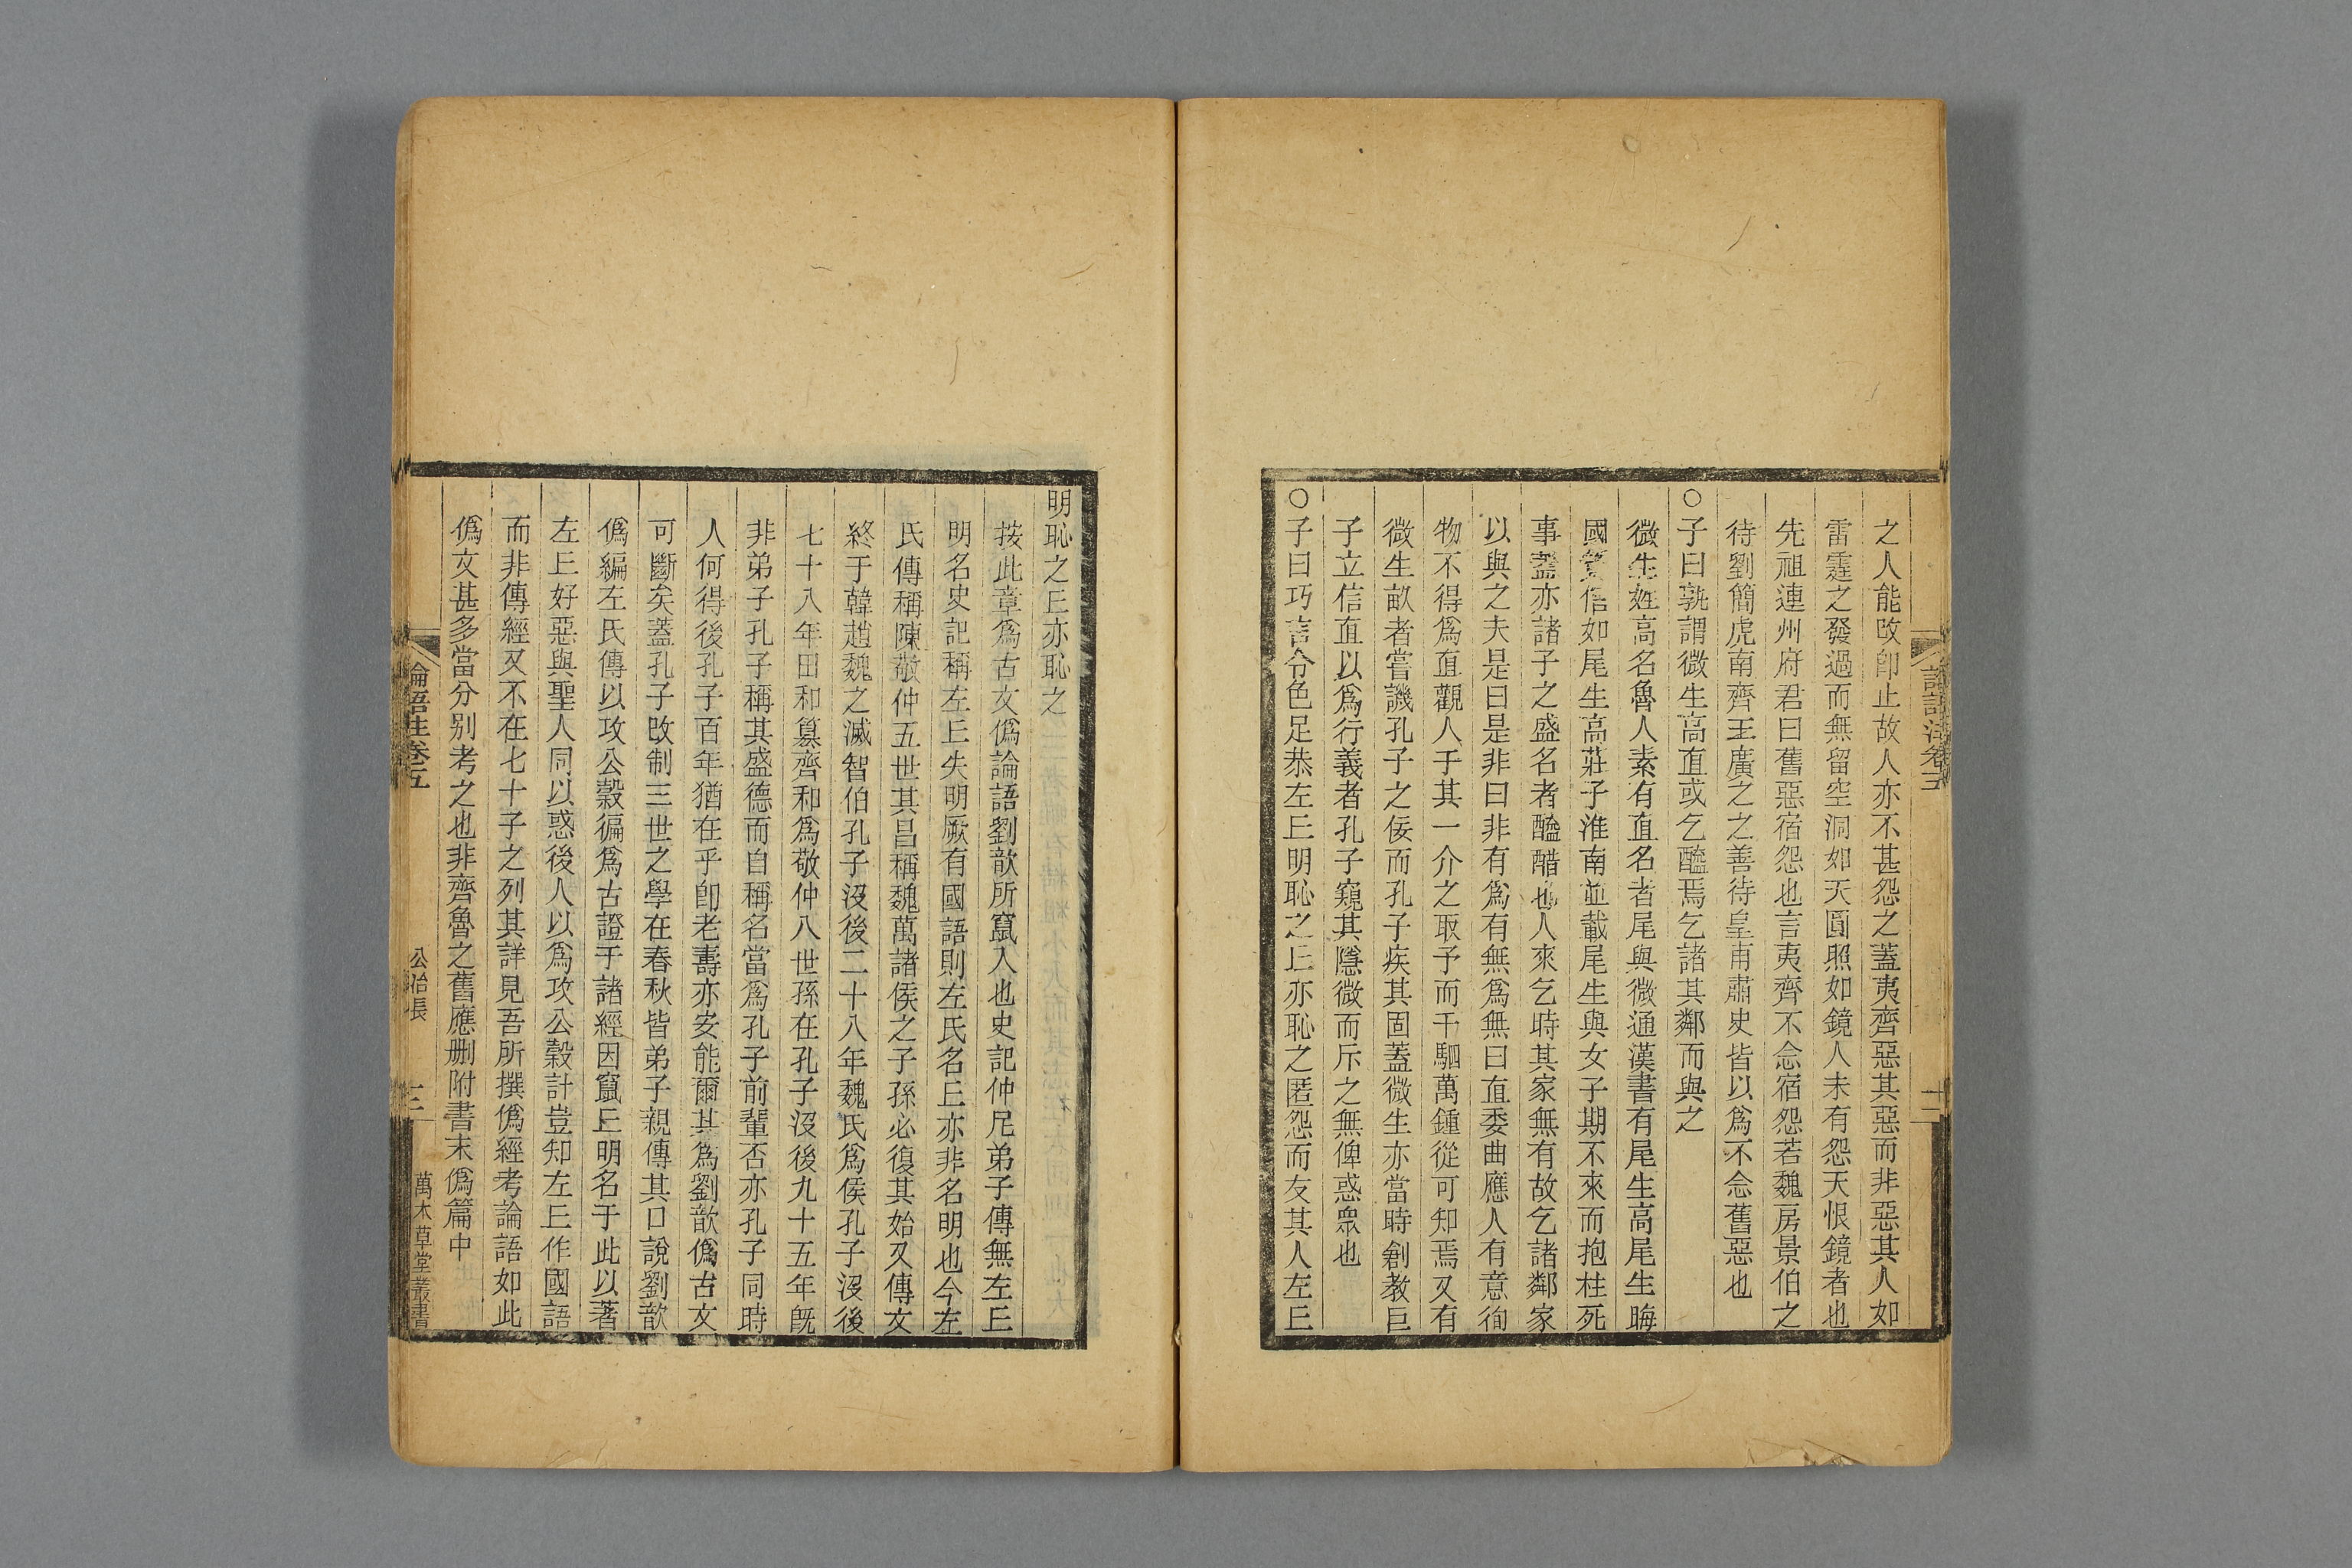 之人能改卽止故人亦不甚怨之蓋夷齊惡其惡而非惡其人如
雷霆之發過而無留空洞如天圓照如鏡人未有怨天恨鏡者也
先祖連州府君曰舊惡宿怨也言夷齊不念宿怨若魏房景伯之
待劉簡虎南齊王廣之之善待皇甫肅史皆以爲不念舊惡也
○子曰孰謂微生高直或乞醯焉乞諸其鄰而與之
微生姓高名魯人素有直名者尾與微通漢書有尾生高尾生晦
國策信如尾生高莊子淮南並載尾生與女子期不來而抱柱死
事蓋亦諸子之盛名者醯醋也人來乞時其家無有故乞諸鄰家
以與之夫是曰是非曰非有爲有無爲無曰直委曲應人有意徇
物不得爲直觀人于其一介之取予而千駟萬鍾從可知焉又有
微生畝者嘗譏孔子之佞而孔子疾其固蓋微生亦當時創教巨
子立信直以爲行義者孔子窺其隱微而斥之無俾惑衆也
○子曰巧言令色足恭左丘明恥之丘亦恥之匿怨而友其人左丘
明恥之丘亦恥之
按此章爲古文僞論語劉歆所竄入也史記仲尼弟子傳無左丘
明名史記稱左丘失明厥有國語則左氏名丘亦非名明也今左
氏傳稱陳敬仲五世其昌稱魏萬諸侯之子孫必復其始又傳文
終于韓趙魏之滅智伯孔子沒後二十八年魏氏爲侯孔子沒後
七十八年田和篡齊和爲敬仲八世孫在孔子沒後九十五年旣
非弟子孔子稱其盛德而自稱名當爲孔子前輩否亦孔子同時
人何得後孔子百年猶在乎卽老壽亦安能爾其爲劉歆僞古文
可斷矣蓋孔子改制三世之學在春秋皆弟子親傳其口說劉歆
僞編左氏傳以攻公穀徧爲古證于諸經因竄丘明名于此以著
左丘好惡與聖人同以惑後人以爲攻公穀計豈知左丘作國語
而非傳經又不在七十子之列其詳見吾所撰僞經考論語如此
僞文甚多當分别考之也非齊魯之舊應删附書末僞篇中
論語注卷五
公冶長
萬木草堂叢書